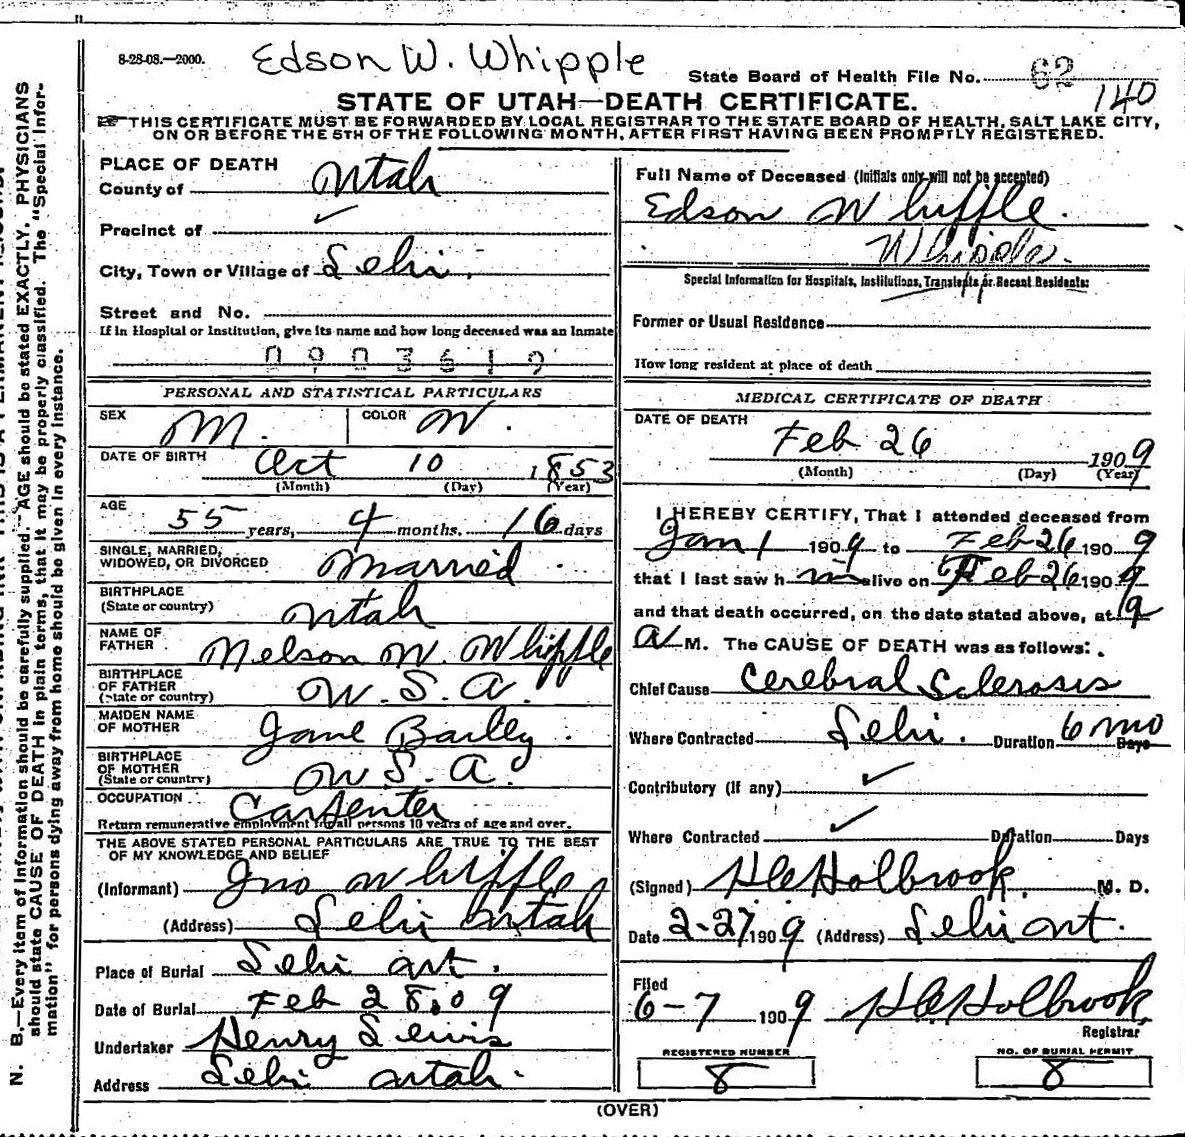 8-28-08.—2000.
Edson W. Whipple
State Board of Health File No. 62
140
STATE OF UTAH—DEATH CERTIFICATE.
THIS CERTIFICATE MUST BE FORWARDED BY LOCAL REGISTRAR TO THE STATE BOARD OF HEALTH, SALT LAKE CITY,
ON OR BEFORE THE 5TH OF THE FOLLOWING MONTH, AFTER FIRST HAVING BEEN PROMPTLY REGISTERED.
PLACE OF DEATH
County of Utah
Precinct of ✓
City, Town or Village of Lehi.
Street and No.
If in Hospital or Institution, give its name and how long deceased was an Inmate
0903619
PERSONAL AND STATISTICAL PARTICULARS
SEX M. COLOR W.
DATE OF BIRTH Oct 10 1853
(Month) (Day) (Year)
AGE 55 years, 4 months. 16 days
SINGLE, MARRIED,
WIDOWED, OR DIVORCED Married
BIRTHPLACE
(State or country) Utah
NAME OF
FATHER Nelson W. Whipple
BIRTHPLACE
OF FATHER
(State or country) U.S.A.
MAIDEN NAME
OF MOTHER Jane Bailey.
BIRTHPLACE
OF MOTHER
(State or country) U.S.A.
OCCUPATION Carpenter
Return remunerative employment for all persons 10 years of age and over.
THE ABOVE STATED PERSONAL PARTICULARS ARE TRUE TO THE BEST
OF MY KNOWLEDGE AND BELIEF
(Informant) Jno Whipple
(Address) Lehi Utah
Place of Burial Lehi Ut.
Date of Burial Feb 28.09
Undertaker Henry Lewis
Address Lehi Utah.
Full Name of Deceased (Initials only will not be accepted)
Edson Whipple.
Whipple.
Special Information for Hospitals, Institutions, Transients or Recent Residents:
Former or Usual Residence
How long resident at place of death
MEDICAL CERTIFICATE OF DEATH
DATE OF DEATH
Feb 26 1909
(Month) (Day) (Year)
I HEREBY CERTIFY, That I attended deceased from
Jan 1 1909 to Feb 26 1909
that I last saw h im alive on Feb 26 1909
and that death occurred, on the date stated above, at 9
A M. The CAUSE OF DEATH was as follows:
Chief Cause Cerebral Sclerosis
Where Contracted Lehi. Duration 6 mo Days
Contributory (if any) ✓
Where Contracted ✓ Duration Days
(Signed) HC Holbrook. M. D.
Date 2-27 1909 (Address) Lehi Ut.
Filed
6-7 1909 HC Holbrook
Registrar
REGISTERED NUMBER
8
NO. OF BURIAL PERMIT
8
(OVER)
N. B.—Every item of information should be carefully supplied. AGE should be stated EXACTLY. PHYSICIANS
should state CAUSE OF DEATH in plain terms, that it may be properly classified. The "Special Infor-
mation" for persons dying away from home should be given in every instance.